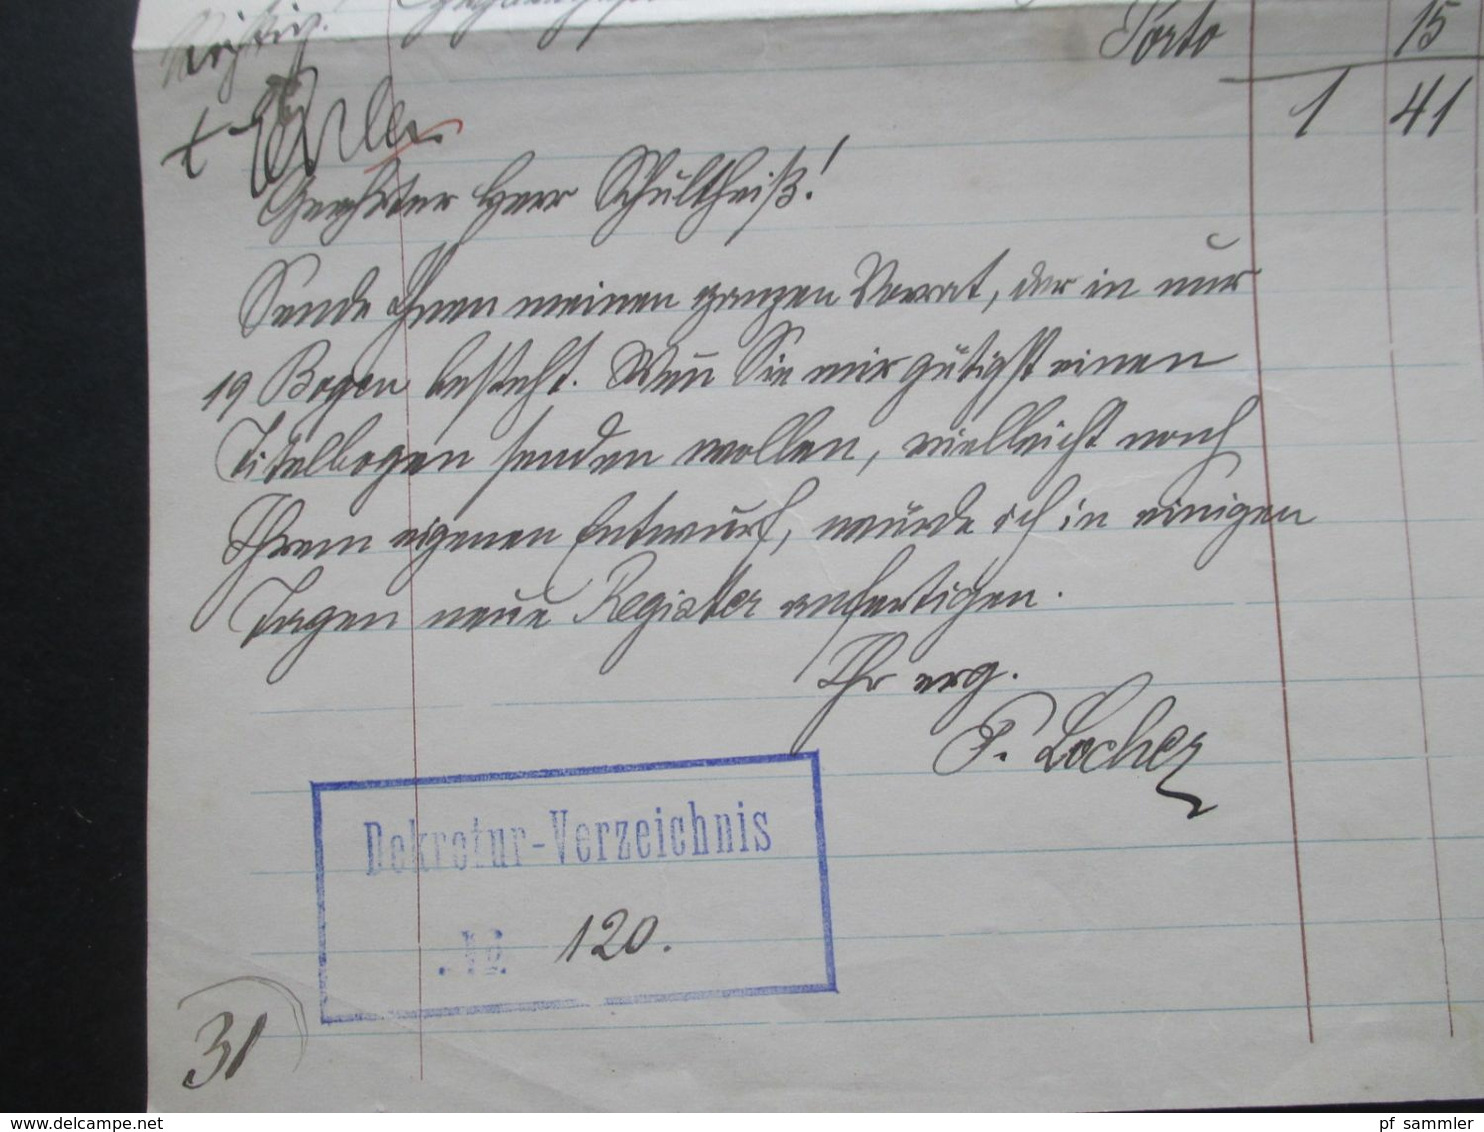 Richtig.
Porto 15
1 41
Geehrter Herr Schultheiß!
Sende Ihnen meinen ganzen Vorrat, der in nur
19 Bogen besteht. Wen̄ Sie mir gütigst einen
Titelbogen senden wollen, vielleicht nach
Ihrem eigenen Entwurf, würde ich in einigen
Tagen neue Register anfertigen.
Ihr erg.
P. Locher
Dekretur-Verzeichnis
No. 120.
31
www.delcampe.net
pf_sammler